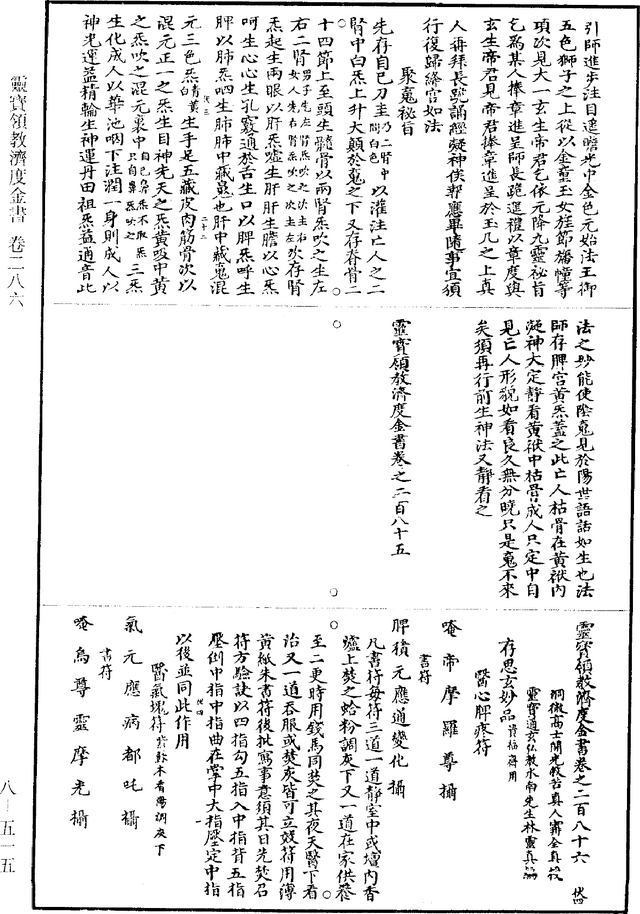 引師進步注目遙瞻光中金色元始法王御
五色獅子之上從以金童玉女旌節旛幢等
項次見大一玄生帝君乞依元降九靈秘旨
乞為某人捧章進呈師長跪進禮以章度與
玄生帝君見帝君捧章進呈於玉几之上真
人再拜長跪誦經凝神俟報應畢隨事宜須
行復歸絳宮如法
聚䰟秘旨
先存自己刀圭乃二腎中間白色以灌注亡人之二
腎中白炁上升大顛於䰟之下又存脊骨二
十四節上至頭生髓骨以兩腎炁吹之生左
右二腎男子先左腎炁吹之次主右女人先右腎炁吹之次主左次存腎
炁起生兩眼以肝炁噓生肝肝生膽以心炁
呵生心心生乳竅通於舌生口以脾炁呼生
脾以肺炁呬生肺肺中藏魄也肝中藏䰟混
元三色炁白青黃生手足五藏皮肉筋骨次以
混元正一之炁生目神先天之炁黃吸中黃
之炁吹之混元裏中三炁
生化成人以華池咽下注潤一身則成人以
神光運益精輪生神運丹田祖炁益通音此
法之妙能使陰䰟見於陽世語話如生也法
師存脾宮黃炁蓋之此亡人枯骨在黃袱內
凝神大定靜看黃袱中枯骨成人只定中自
見亡人形貌如看良久無分曉只是䰟不來
矣須再行前生神法又靜看之
靈寶領教濟度金書卷之二百八十五
靈寶領教濟度金書卷之二百八十六 伏四
洞微高士開光救苦真人甯全真授
靈寶通玄弘教水南先生林靈真編
存思玄妙品資福齋用
醫心脾疼符
唵帝摩羅尊攝
書符
脾積元應通變化攝
凡書符每符三道一道靜室中或壇內香
爐上焚之蛤粉調灰下又一道在家供養
至二更時用錢馬同焚之其夜天醫下看
治又一道吞服或焚灰皆可立效符用薄
黃紙朱書符後批寫事意須其日先焚召
符方驗訣以四指勾五指入中指背五指
壓倒中指中指曲在掌中大指壓定中指
以後並同此作用
醫氣塊符
氣元應病都吒攝
書符
唵烏尊靈摩光攝
靈寶領教濟度金書 卷二八六
八—五一五